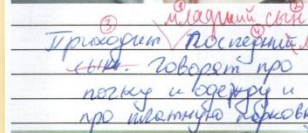 младший сын
Приходит последний
сын. говорят про
почку и одежду и
про платную парковк